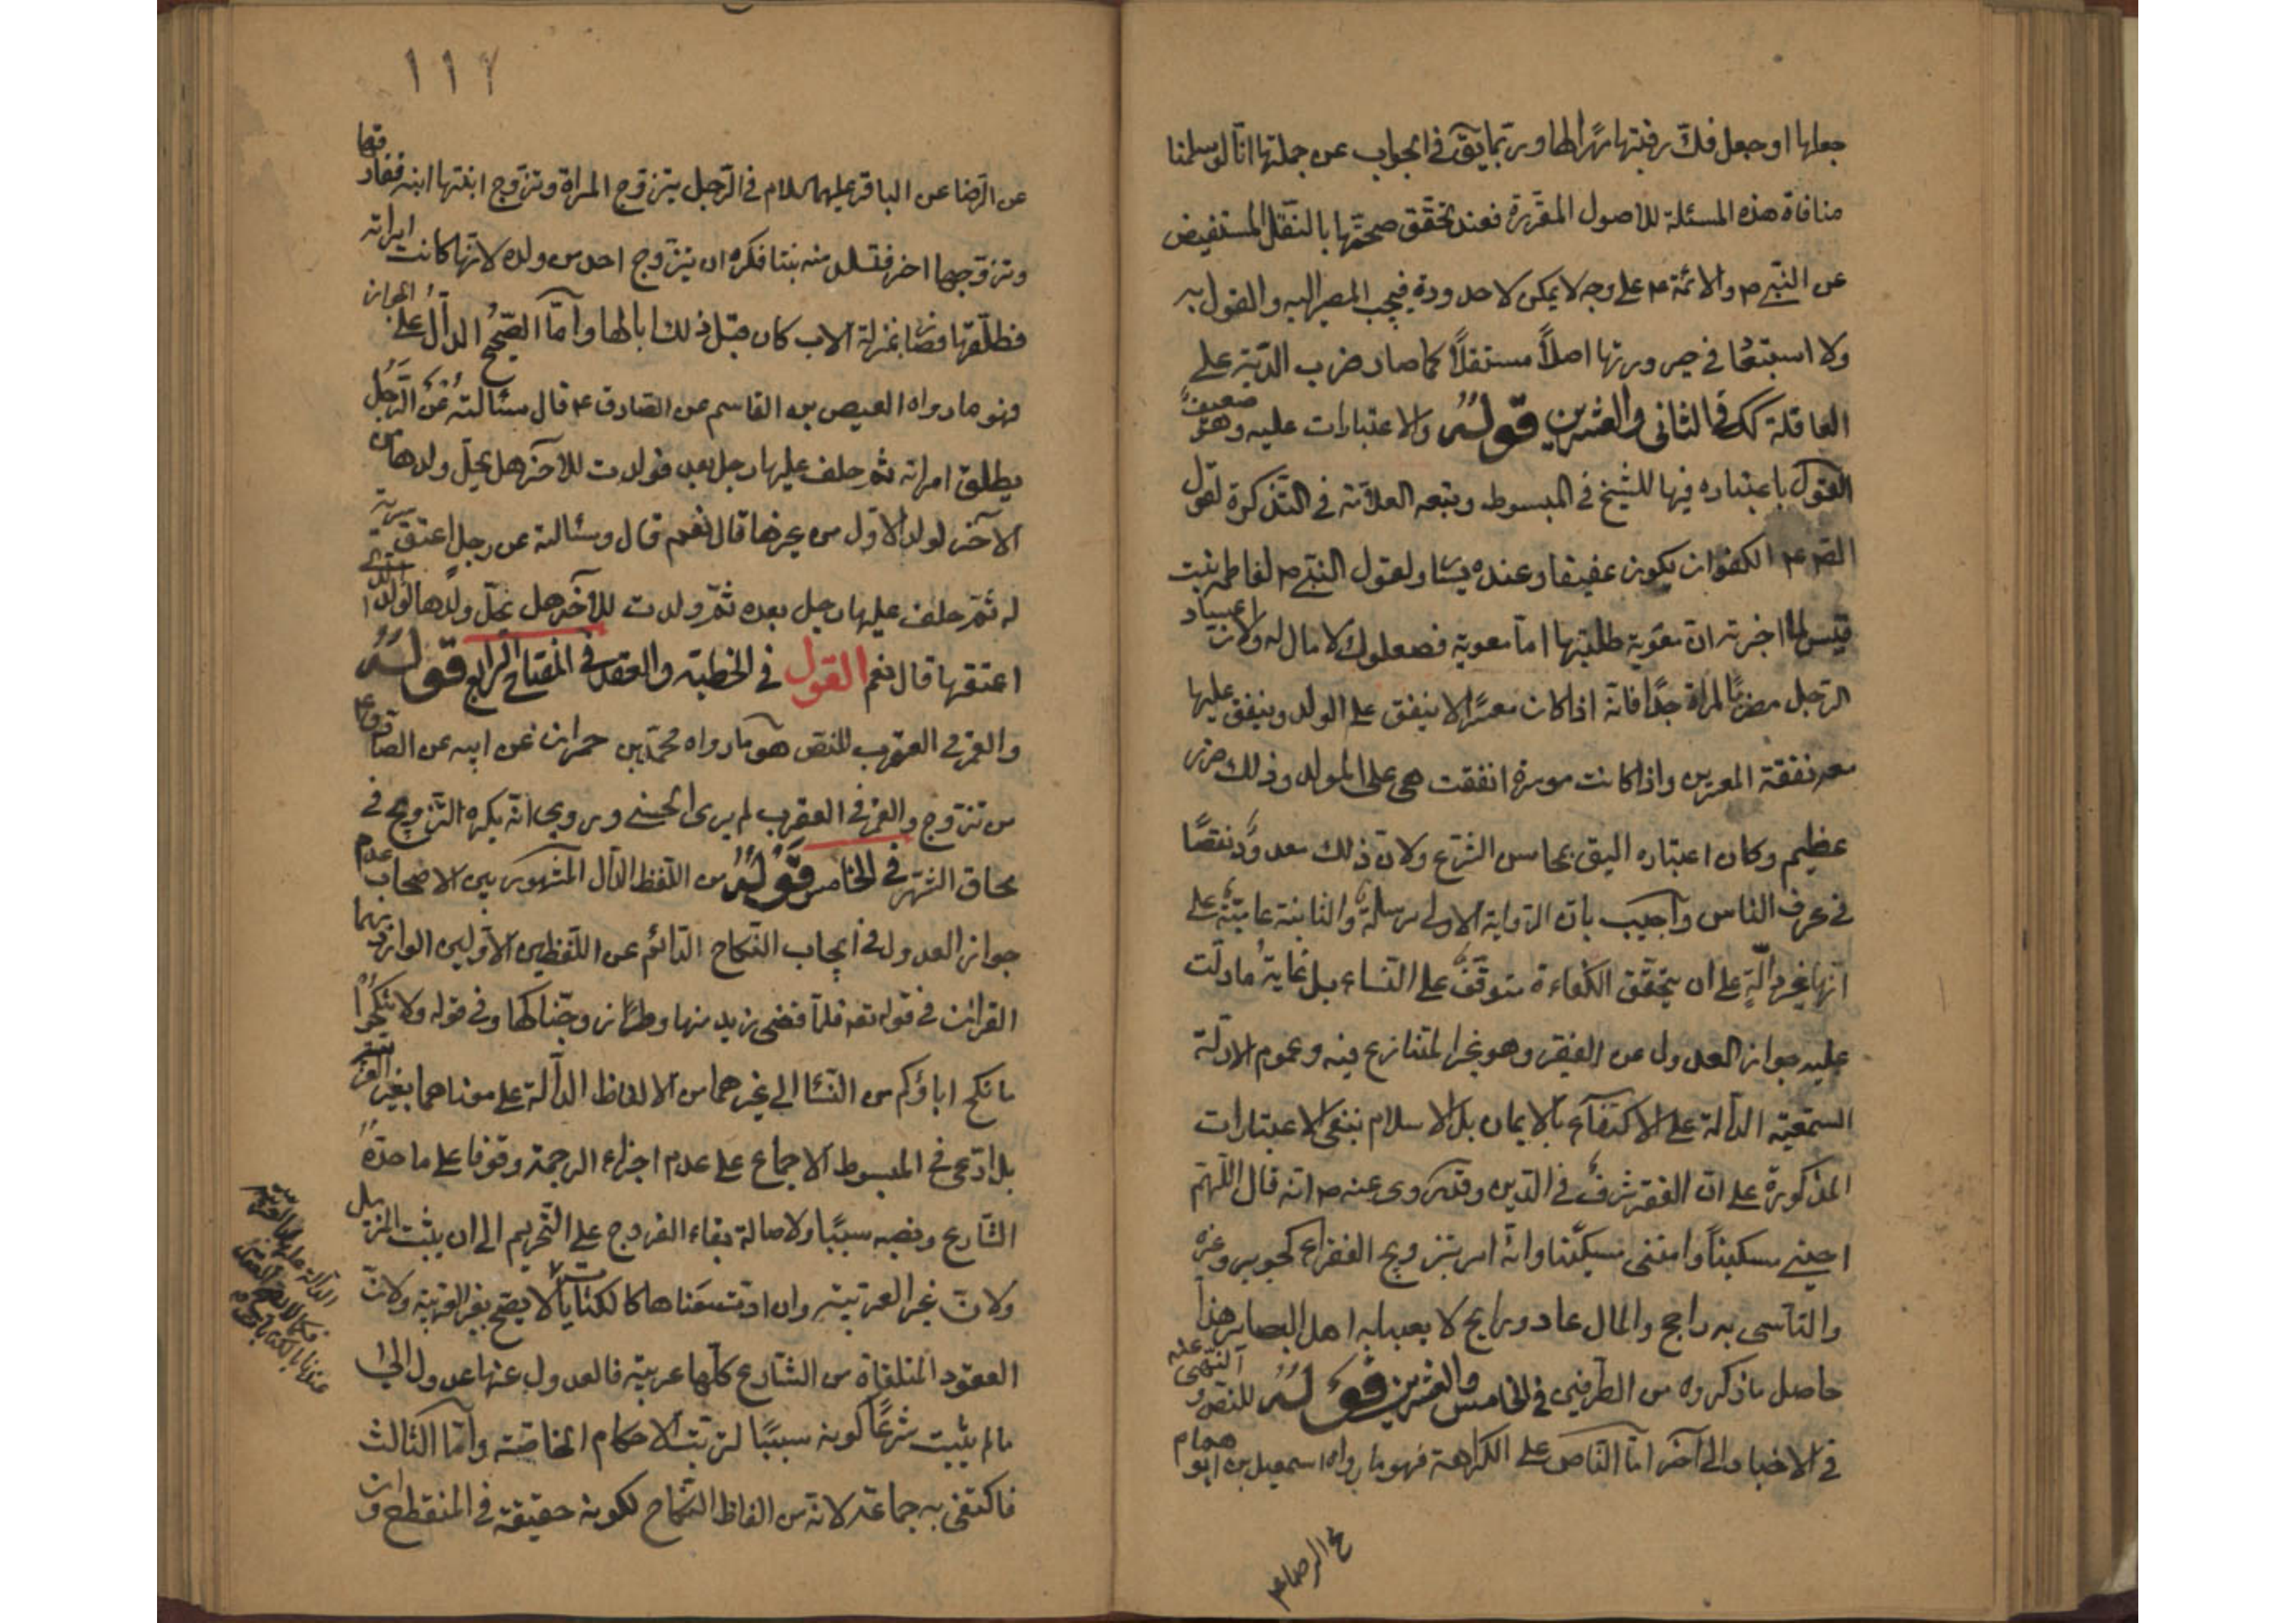 جعلها او جعل فك رقبتها مهرا لها وربما يق في الجواب عن جملتها انا لو سلمنا
منافاة هذه المسئلة للاصول المقررة فعند تحقق صحتها بالنقل المستفيض
عن النبي ص والائمة ع على وجه لا يمكن لاحد رده فيجب المصير اليه والقول به
ولا استبعاد في صيرورتها اصلاً مستقلاً كما صار ضرب الدية على
العاقلة كك في الثاني والعشرين قوله والاعتبارات عليه وهو ضعيف
القول باعتباره فيها للشيخ في المبسوط وتبعه العلامة في التذكرة لقول
الص ع الكفو ان يكون عفيفا وعنده يسار ولقول النبي ص لفاطمه بنت
قيس لما اخبرته ان معوية طلبتها اما معوية فصعلوك لا مال له ولان اعسار
الرجل مضر بالمراة جدًا فانه اذا كان معسرًا لا ينفق على الولد وينفق عليها
معه نفقة المعسرين واذا كانت موسرة انفقت هي على المولد وذلك ضرر
عظيم وكان اعتباره اليق بمحاسن الشرع ولان ذلك معدود نقصًا
في عرف الناس واجيب بان الرواية الاولى مرسلة والثانية عامية على
انها غير دالّة على ان تحقق الكفاءة متوقف على النساء بل غاية ما دلت
عليه جواز العدول عن الفقير وهو غير المتنازع فيه وعموم الادلة
السمعية الدالة على الاكتفاء بالايمان بل الاسلام ينفي الاعتبارات
المذكورة على ان الفقر شرف في الدين وقد روى عنه ص انه قال اللهم
احيني مسكيناً وامتني مسكينا وانه امر بتزويج الفقراء كجويبر وغيره
والتاسى به راجح والمال غاد ورايح لا يعبا به اهل البصاير هذا
حاصل ما ذكروه من الطرفين في الخامس والعشرين قوله للنص و النهى عنه
في الاخبار الى آخر اما الناص على الكراهة فهو ما رواه اسمعيل بن همام ابو
١١٧
عن الرضا عن الباقر عليهما السلام في الرجل يتزوج المراة وتزوج ابنتها ابنه
وتزوجها اخر فتلد منه بنتا فكره ان يتزوج احد من ولده لانها كانت امراته
فطلقها فصار بمنزلة الاب كان قبل ذلك ابا لها واما الصحيح الدال على الجواز
فهو ما رواه العيص بن القاسم عن الصادق ع قال سئالته عن الرجل
يطلق امراته ثم خلف عليها رجل بعد فولدت للاخر هل يحل ولدها من
الآخر لولد الاول من غيرها قال نعم قال وسئالته عن رجل اعتق سرية
له ثم خلف عليها رجل بعده ثم ولدت للآخر هل يحل ولدها لولد الذي
اعتقها قال نعم القول في الخطبة والعقد في المفتاح الرابع قوله
والقمر في العقرب للنص هو ما رواه محمد بن حمران عن ابيه عن الصادق ع
من تزوج والقمر في العقرب لم يرى الحسنى وروى انه يكره التزويج في
محاق الشهر في الخامس قوله من اللفظ الدال المشهور بين الاصحاب عدم
جواز العدول في ايجاب النكاح الدائم عن اللفظين الاولين الوارد بهما
القرآن في قوله تعه فلما قضى زيد منها وطرًا زوجناكها وفي قوله ولا تنكحوا
ما نكح اباؤكم من النسا الى غيرهما من الالفاظ الدالة على معناهما بغير
بل ادعى في المبسوط الاجماع على عدم اجزاء الترجمة وقوفا على ما حده
الشارع ونصبه سببًا ولاصالة بقاء الفروج على التحريم الى ان يثبت المزيل
ولان غير العربية وان ادت معناها كالكنايات لا يصح بغير العربية ولان
العقود المتلقاة من الشارع كلها عربية فالعدول عنها عدول الى
ما لم يثبت شرعًا كونه سببًا لترتب الاحكام الخاصة واما الثالث
فاكتفى به جماعة لانه من الفاظ النكاح لكونه حقيقة في المنقطع وان